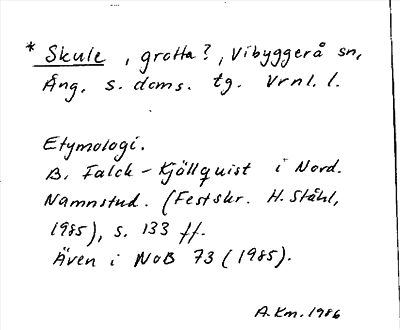 * Skule, grotta?, Vibyggerå sn,
Ång. s. doms. tg. Vrnl. l.
Etymologi.
B. Falck-Kjällquist i Nord.
Namnstud. (Festskr. H. Ståhl,
1985), s. 133 ff.
Även i NoB 73 (1985).
A. Km. 1986